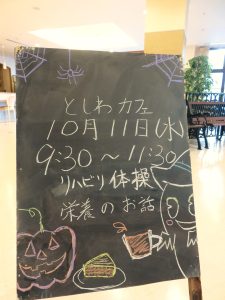 としわカフェ
10月11日(水)
9:30～11:30
リハビリ体操
栄養のお話